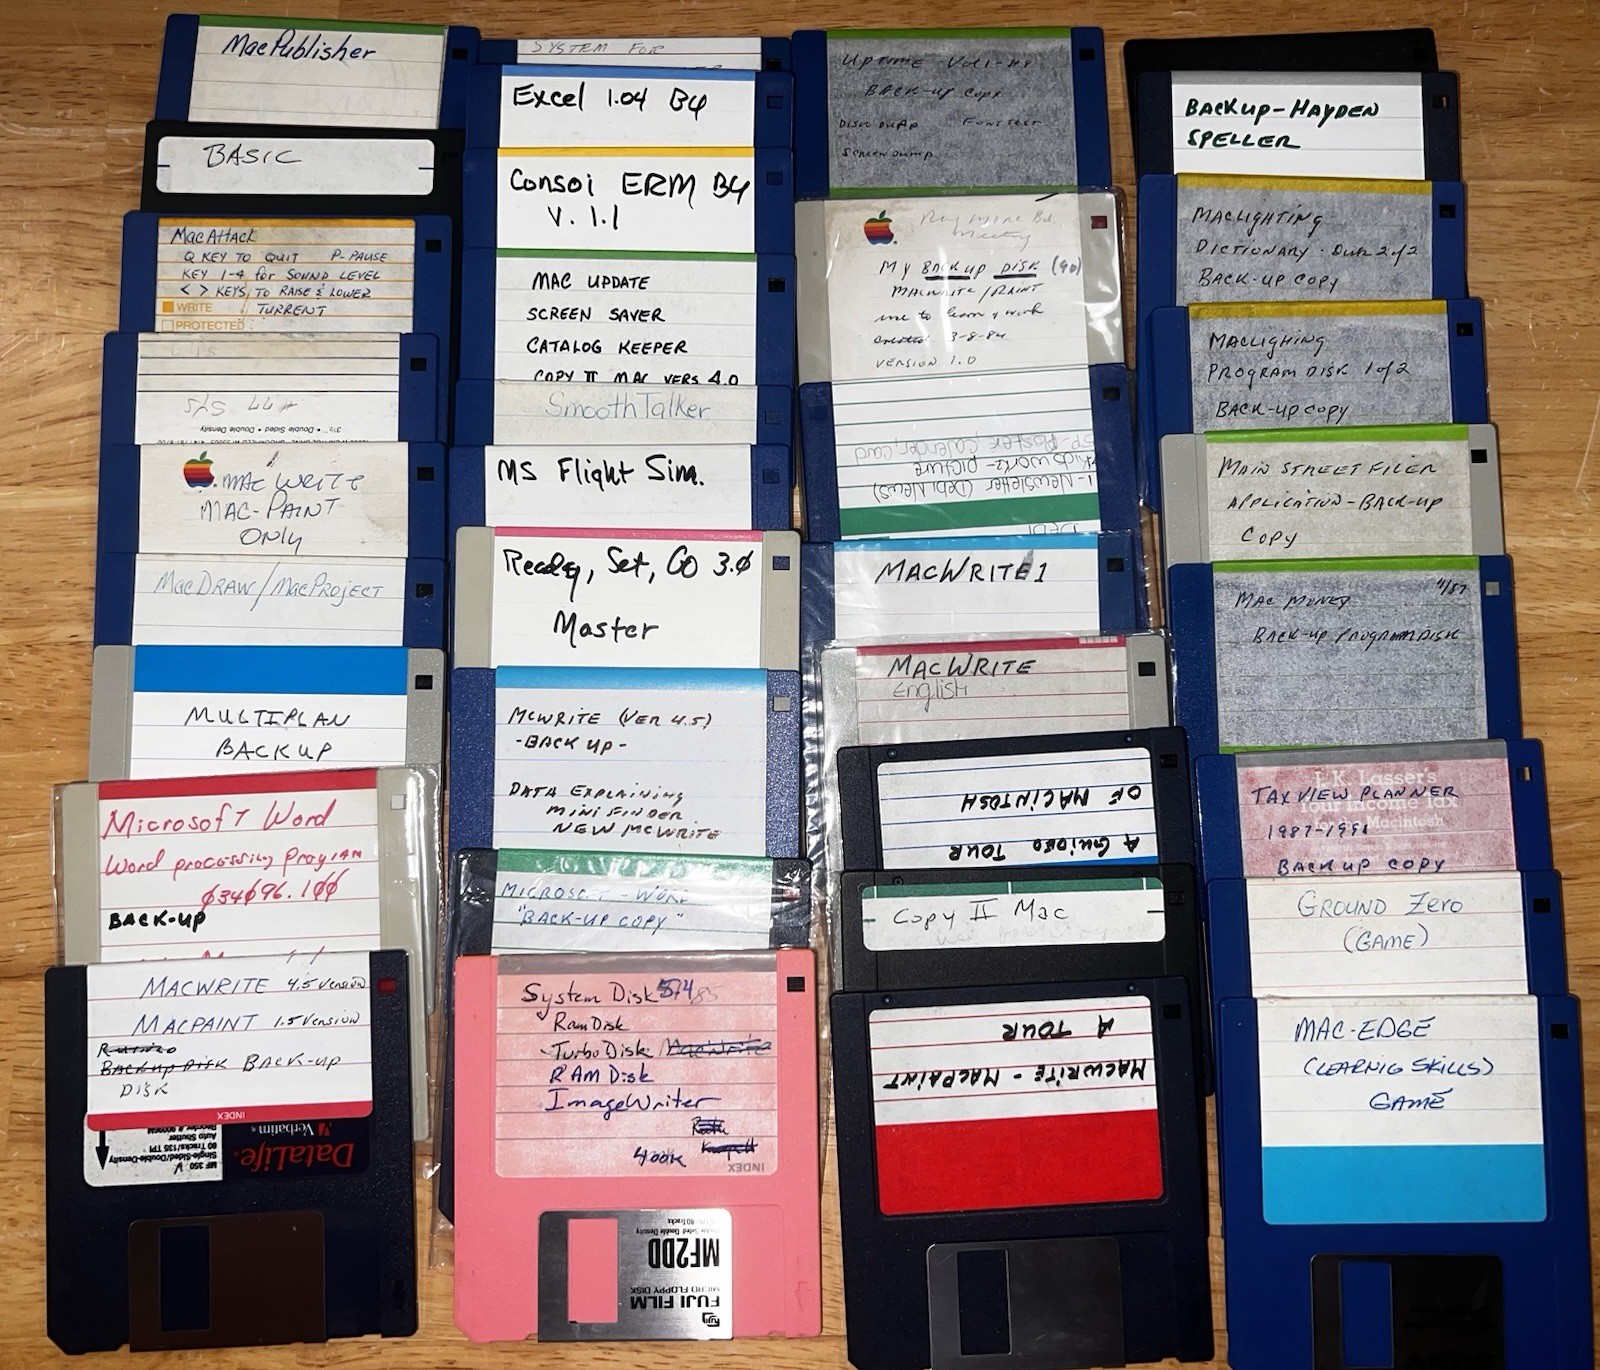 MacPublisher
BASIC
MacAttack
Q KEY TO QUIT P-PAUSE
KEY 1-4 for SOUND LEVEL
< > KEYS TO RAISE & LOWER
WRITE TURRENT
PROTECTED
SYS
3½" • Double Sided • Double Density
MAC WRITE
MAC-PAINT
ONLY
MacDraw/MacProject
MULTIPLAN
BACKUP
Microsoft Word
Word processing Program
034096.100
BACK-UP
MACWRITE 4.5 Version
MACPAINT 1.5 Version
BACKUP DISK BACK-UP
DISK
INDEX
DataLife
Verbatim
MF 350
Single-Sided/Double-Density
80 Tracks/135 TPI
Auto Shutter
SYSTEM FOR
Excel 1.04 B4
Consoi ERM B4
V. 1.1
MAC UPDATE
SCREEN SAVER
CATALOG KEEPER
COPY II MAC VERS 4.0
SmoothTalker
MS Flight Sim.
Ready, Set, GO 3.0
Master
MCWRITE (VER 4.5)
-BACK UP-
DATA EXPLAINING
MINI FINDER
NEW MCWRITE
MICROSOFT - WORD
"BACK-UP COPY"
System Disk
RamDisk
TurboDisk MacWrite
RAM Disk
ImageWriter
400K
INDEX
MF2DD
MICRO FLOPPY DISK
FUJI FILM
UPTIME Vol 1-#8
BACK-up Copy
FONT TEST
SCREEN DUMP
Meeting
My BACKUP DISK
MACWRITE/PAINT
use to learn & work
created 3-8-84
VERSION 1.0
DEBI
1-Newsletter (Debi News)
Kidsworkz-picture
SP-Poster, Calender, Card
MACWRITE 1
MACWRITE
English
A GUIDED TOUR
OF MACINTOSH
Copy II Mac
A TOUR
MACWRITE - MACPAINT
BACKUP-HAYDEN
SPELLER
MACLIGHTING
DICTIONARY - DISK 2 of 2
BACK-UP COPY
MACLIGHING
PROGRAM DISK 1 of 2
BACK-UP COPY
MAIN STREET FILER
APPLICATION-BACK-UP
COPY
MAC MONEY 11/87
BACK-UP PROGRAM DISK
J.K. Lasser's
Your Income Tax
for the Macintosh
TAX VIEW PLANNER
1987-1991
BACK UP COPY
GROUND ZERO
(GAME)
MAC-EDGE
(LEARNIG SKILLS)
GAME